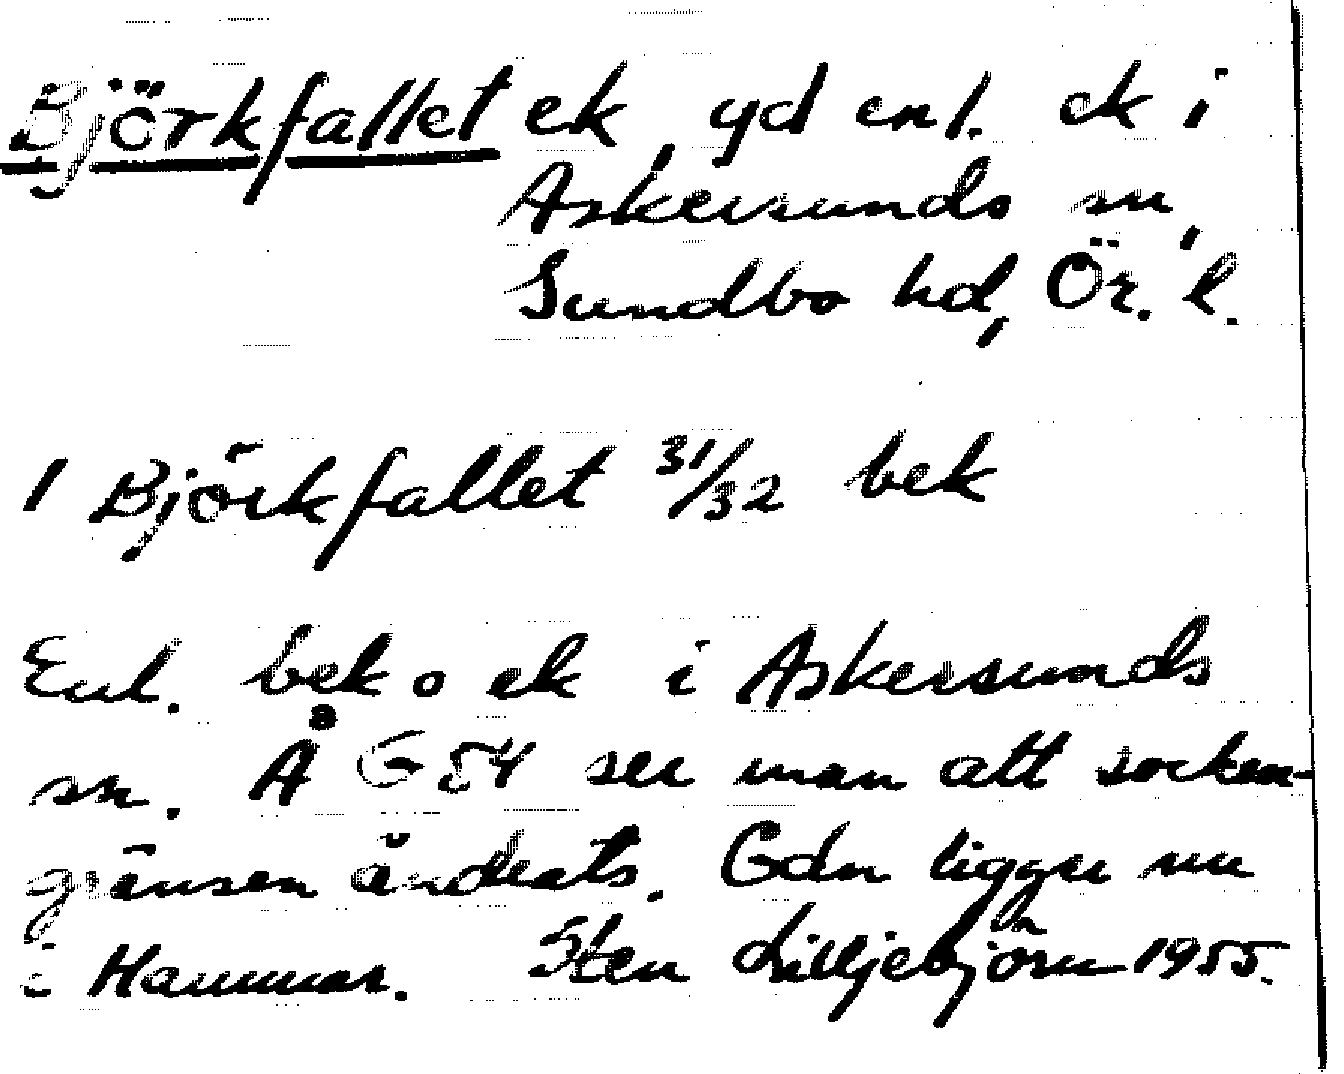 Björkfallet ek yd enl. ek i
Askersunds sn,
Sundbo hd, Ör. l.
1 Björkfallet 31/32 bek
Enl. bek o ek i Askersunds
sn. Å G 54 ser man att socken-
gränsen ändrats. Gdn ligger nu
i Hammar. Sten Lilljebjörn 1955.